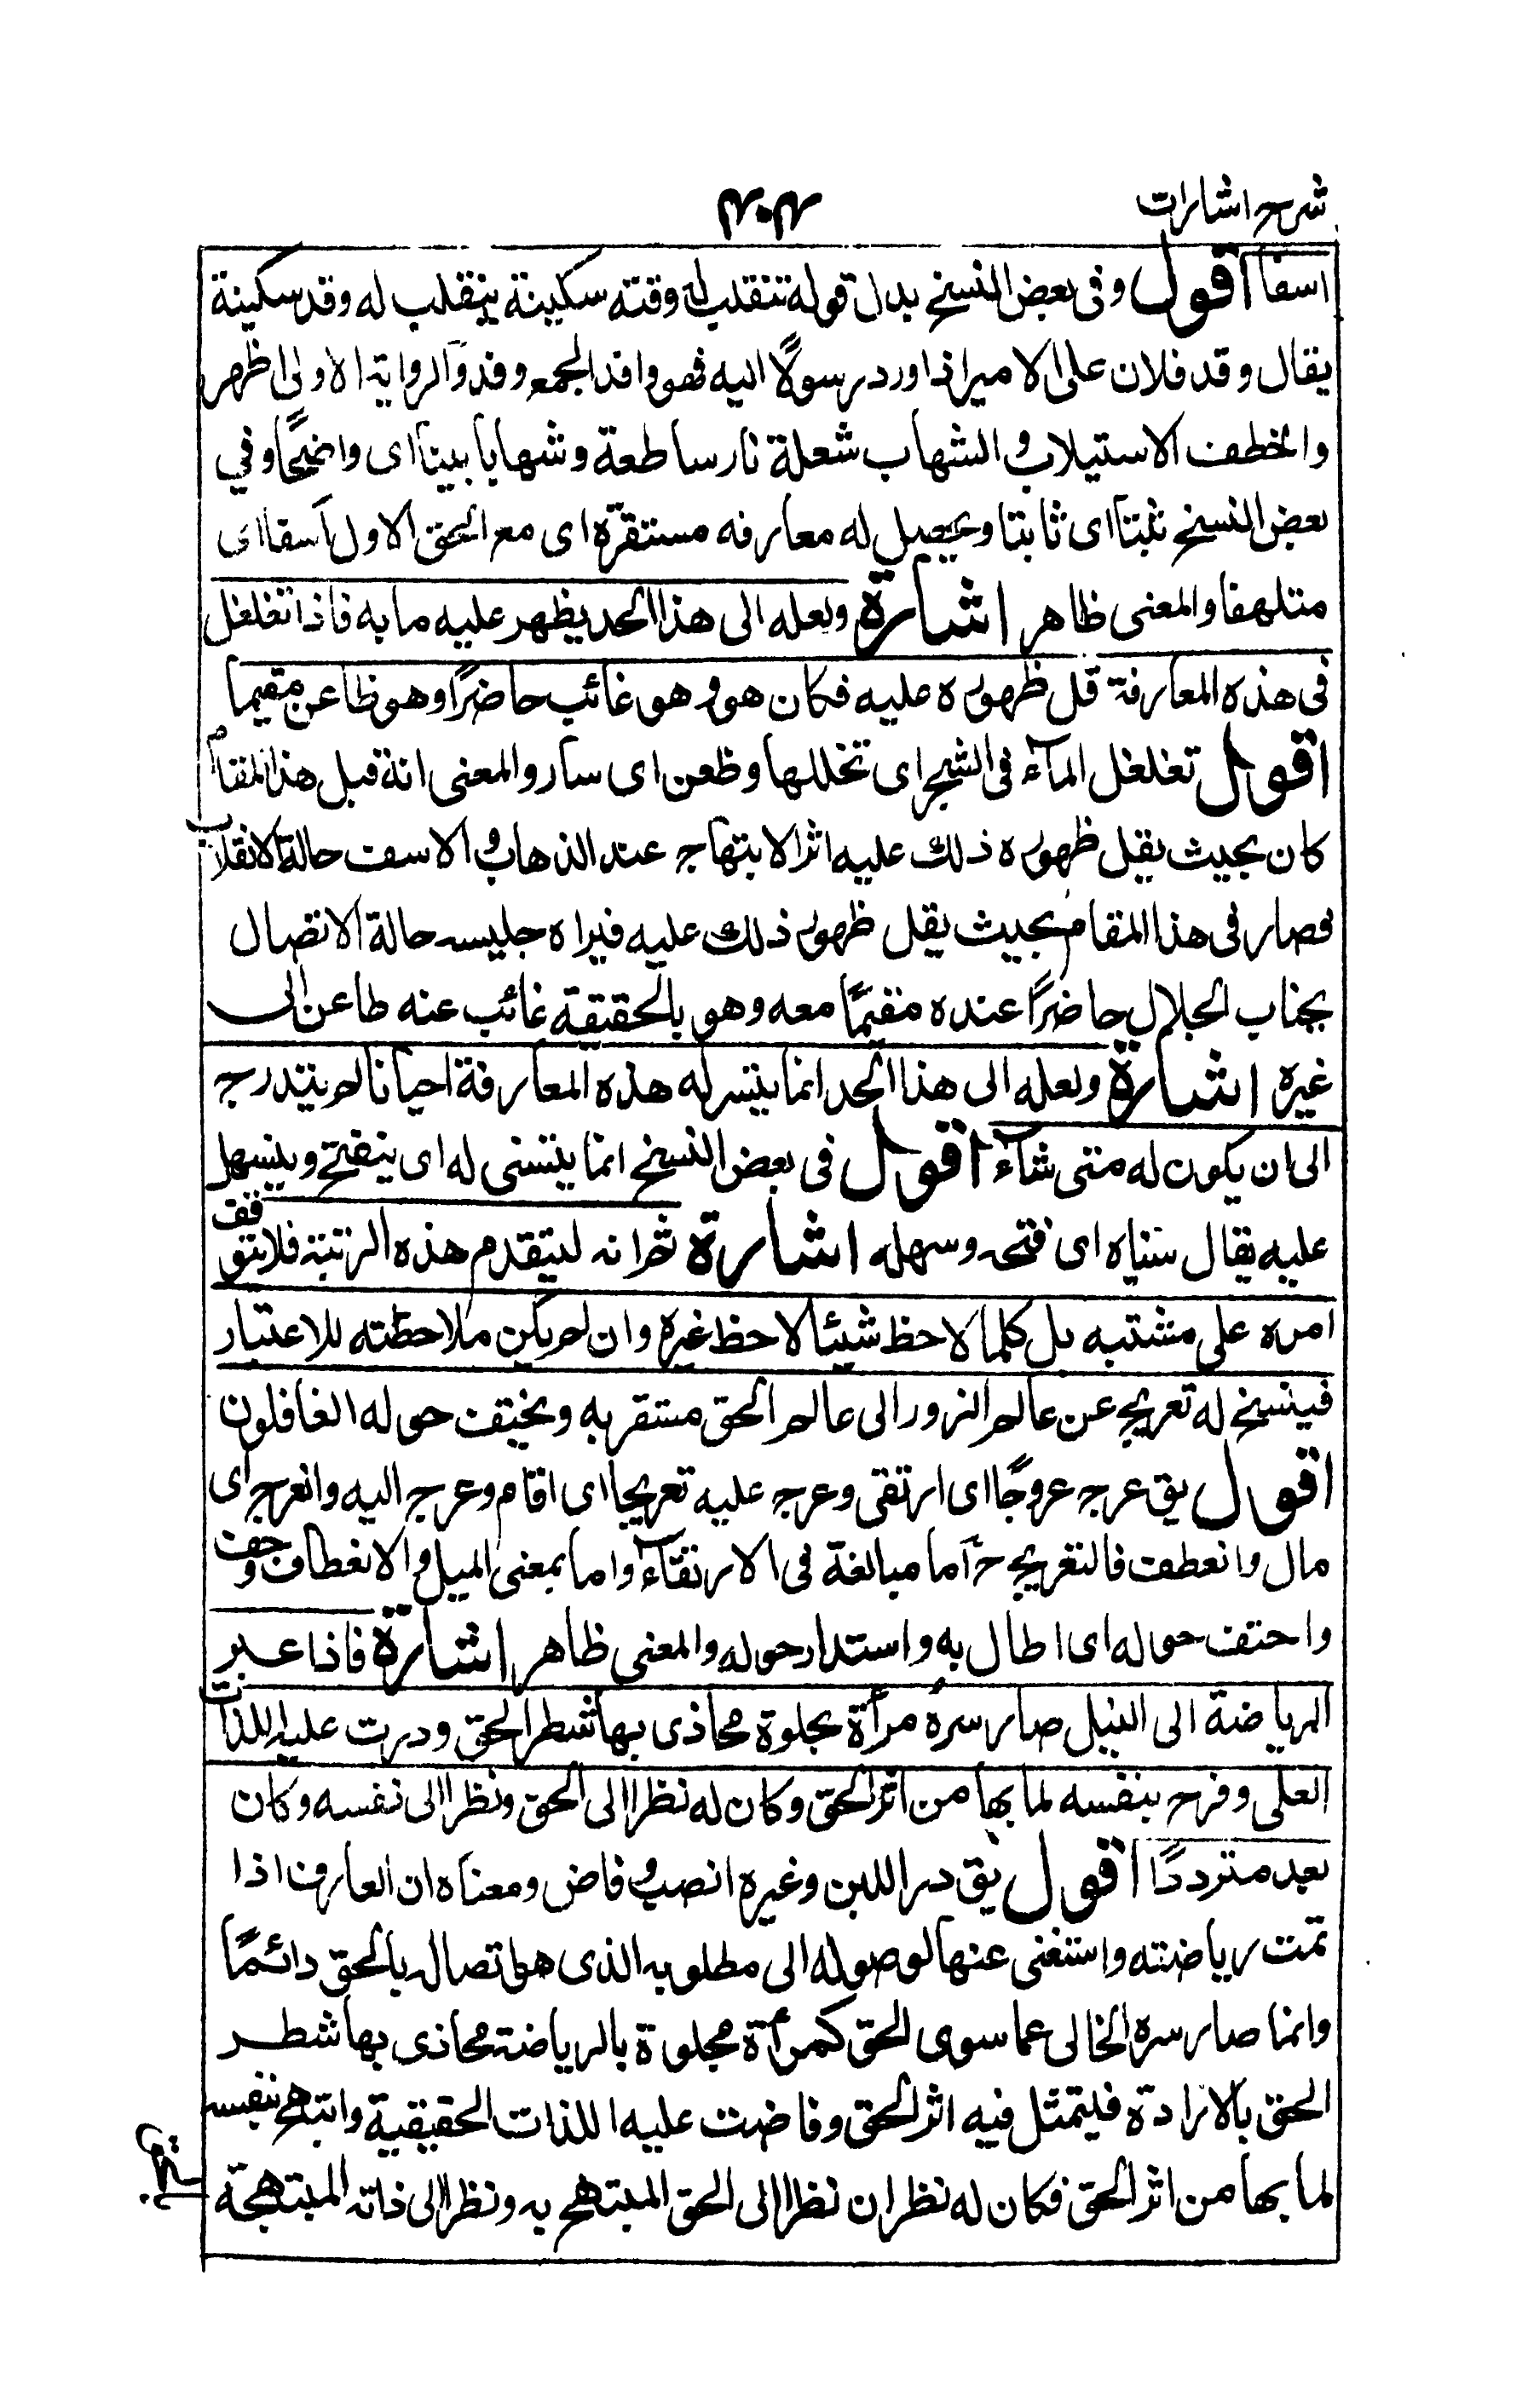 شرح اشارات
۴۰۴
اسفا اقول وفى بعض النسخ بدل قوله تنقلب له وقته سكينة ينقلب له وقد سكينة
يقال وقد فلان على الامير اذا ورد رسولًا اليه فهو وافد الجمع وفد والرواية الاولى اظهر
والخطف الاستيلاب والشهاب شعلة نار ساطعة وشهابا بينا اى واضحًا وفي
بعض النسخ ثبتا اى ثابتا ويحصيل له معارفه مستقرة اى مع الحق الاول آسفا اى
متلهفا والمعنى ظاهر اشارة ولعله الى هذا الحد يظهر عليه ما به فاذا تغلغل
فى هذه المعارفة قل ظهوره عليه فكان هو وهو غائب حاضرًا وهو ظاعن مقيما
اقول تغلغل المآء فى الشجر اى تخللها وظعن اى سار والمعنى انه قبل هذا المقام
كان بحيث يقل ظهوره ذلك عليه اثر الابتهاج عند الذهاب والاسف حالة الانقلاب
فصار فى هذا المقام بحيث يقل ظهور ذلك عليه فيراه جليسه حالة الاتصال
بجناب الجلال حاضرًا عنده مقيمًا معه وهو بالحقيقة غائب عنه ظاعن الى
غيره اشارة ولعله الى هذا الحد انما يتيسر له هذه المعارفة احيانا ثم يتدرج
الى ان يكون له متى شآء اقول فى بعض النسخ انما يتسنى له اى ينفتح ويتسهل
عليه يقال سناه اى فتحه وسهله اشارة ثم انه ليتقدم هذه الرتبة فلا يتوقف
امره على مشتبه بل كلما لاحظ شيئا لاحظ غيره وان لم يكن ملاحظته للاعتبار
فيسنخ له تعريج عن عالم الزور الى عالم الحق مستقر به ويحتف حوله الغافلون
اقول يق عرج عروجًا اى ارتقى وعرج عليه تعريجا اى اقام وعرج اليه وانعرج اى
مال وانعطف فالتعريج ح اما مبالغة فى الارتقآء واما بمعنى الميل والانعطاف وحف
واحتف حوله اى اطال به واستدار حوله والمعنى ظاهر اشارة فاذا عبر
الرياضة الى النيل صار سره مرأة مجلوة محاذى بها شطر الحق ودرت عليه اللذات
العلى وفرح بنفسه لما بها من اثر الحق وكان له نظر الى الحق ونظر الى نفسه وكان
بعد مترددًا اقول يق در اللبن وغيره انصب وفاض ومعناه ان العارف اذا
تمت رياضته واستغنى عنها لوصوله الى مطلوبه الذى هو اتصاله بالحق دائمًا
وانما صار سره الخالى عما سوى الحق كمرأة مجلوة بالرياضة محاذى بها شطر
الحق بالارادة فليتمثل فيه اثر الحق وفاضت عليه اللذات الحقيقية وابتهج بنفسه
لما بها من اثر الحق فكان له نظران نظر الى الحق المبتهج به ونظر الى ذاته المبتهجة